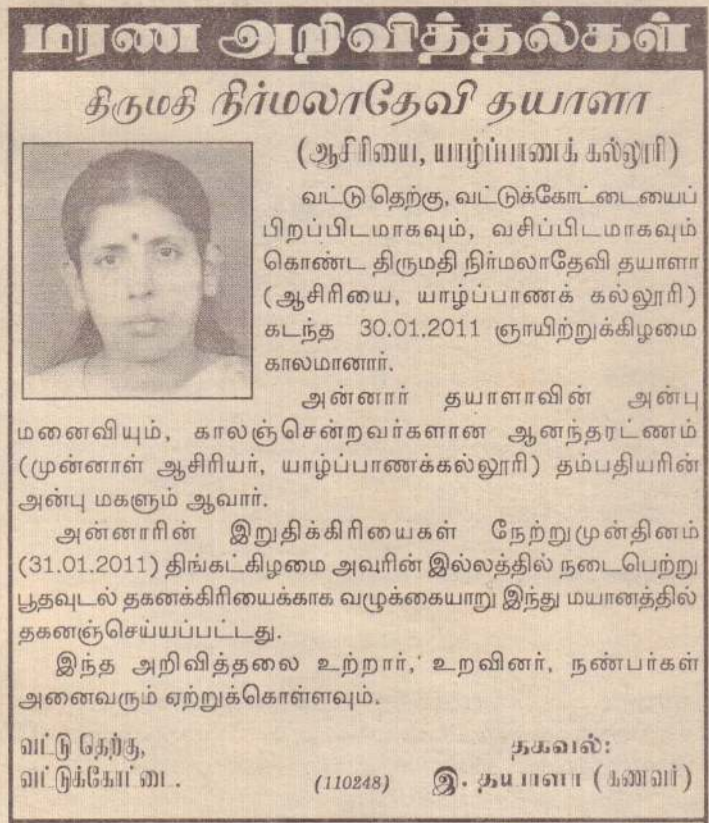 மரண அறிவித்தல்கள்
திருமதி நிர்மலாதேவி தயாளா
(ஆசிரியை, யாழ்ப்பாணக் கல்லூரி)
வட்டு தெற்கு, வட்டுக்கோட்டையைப்
பிறப்பிடமாகவும், வசிப்பிடமாகவும்
கொண்ட திருமதி நிர்மலாதேவி தயாளா
(ஆசிரியை, யாழ்ப்பாணக் கல்லூரி)
கடந்த 30.01.2011 ஞாயிற்றுக்கிழமை
காலமானார்.
அன்னார் தயாளாவின் அன்பு
மனைவியும், காலஞ்சென்றவர்களான ஆனந்தரட்ணம்
(முன்னாள் ஆசிரியர், யாழ்ப்பாணக்கல்லூரி) தம்பதியரின்
அன்பு மகளும் ஆவார்.
அன்னாரின் இறுதிக்கிரியைகள் நேற்றுமுன்தினம்
(31.01.2011) திங்கட்கிழமை அவரின் இல்லத்தில் நடைபெற்று
பூதவுடல் தகனக்கிரியைக்காக வழுக்கையாறு இந்து மயானத்தில்
தகனஞ்செய்யப்பட்டது.
இந்த அறிவித்தலை உற்றார், உறவினர், நண்பர்கள்
அனைவரும் ஏற்றுக்கொள்ளவும்.
வட்டு தெற்கு, தகவல்:
வட்டுக்கோட்டை. (110248) இ. தயாளா (கணவர்)